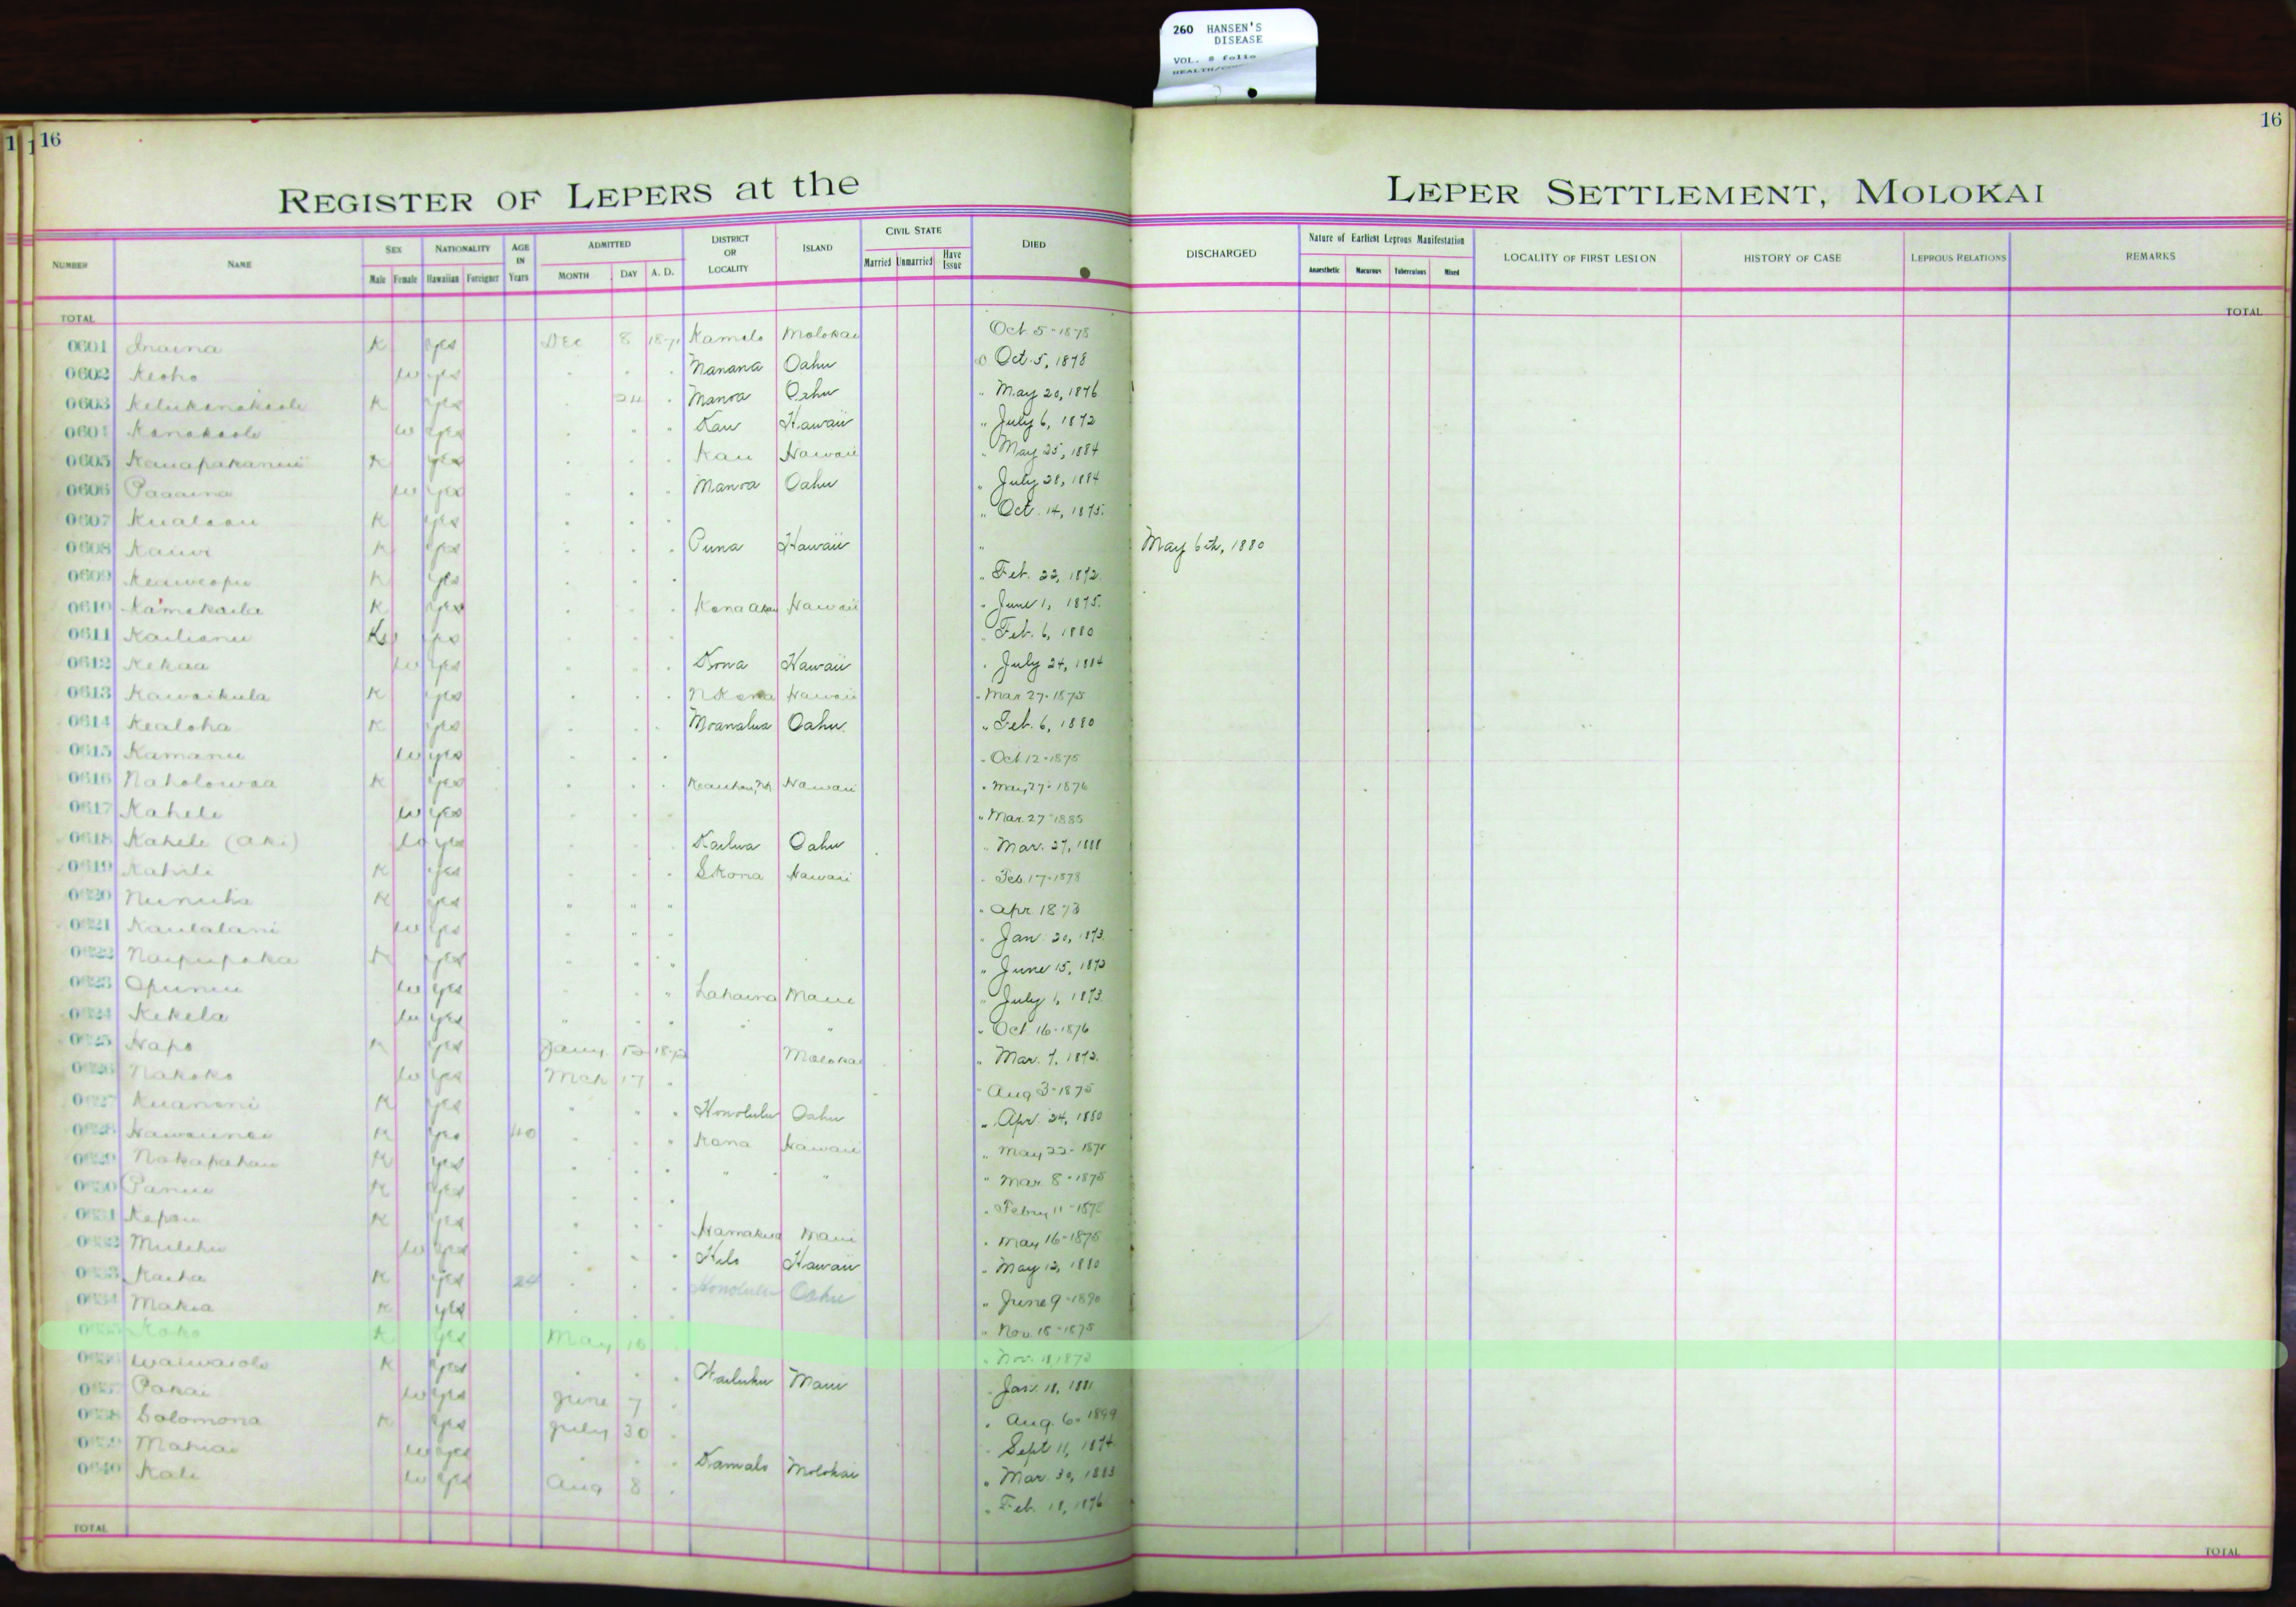 260 HANSEN'S
DISEASE
VOL. 8 folio
16
16
REGISTER OF LEPERS at the LEPER SETTLEMENT, MOLOKAI
NUMBER NAME SEX Male Female NATIONALITY Hawaiian Foreigner AGE IN Years ADMITTED MONTH DAY A. D. DISTRICT OR LOCALITY ISLAND CIVIL STATE Married Unmarried Have Issue DIED DISCHARGED Nature of Earliest Leprous Manifestation Anaesthetic Macurous Tuberculous Mixed LOCALITY OF FIRST LESION HISTORY OF CASE LEPROUS RELATIONS REMARKS
TOTAL TOTAL
0601 Inaina K yes Dec 8 1871 Kamalo Molokai Oct 5-1878
0602 Keoho w yes Manana Oahu Oct. 5, 1878
0603 K yes 24 Manoa Oahu " May 20, 1876
0604 Kanakaole w yes Kau Hawaii " July 6, 1872
0605 K yes Kau Hawaii " May 25, 1884
0606 Paaaina w yes Manoa Oahu " July 28, 1884
0607 Kualaau K yes " Oct. 14, 1875.
0608 Kauwi K yes Puna Hawaii " May 6th, 1880
0609 Keaweopu K yes " Feb. 22, 1872.
0610 Kamakaila K yes Kona Akau Hawaii " June 1, 1875.
0611 Kailianu yes Feb. 6, 1880
0612 Kekaa w yes Kona Hawaii " July 24, 1884
0613 Kawaikula K yes N Kona Hawaii " Mar 27-1875
0614 Kealoha K yes Moanalua Oahu " Feb. 6, 1880
0615 Kamanu w yes " Oct 12-1875
0616 Naholowaa K yes Hawaii " May 27-1876
0617 Kahele w yes " Mar. 27 1885
0618 Kahele (Aki) w yes Kailua Oahu " Mar. 27, 1888
0619 Kahili K yes S Kona Hawaii " Feb. 17-1878
0620 Nunuha K yes " " " " Apr 1873
0621 Kaulalani w yes " Jan. 20, 1873.
0622 Naipupaka K yes " June 15, 1873
0623 Opunui w yes Lahaina Maui " July 1, 1873.
0624 Kekela w yes " " " Oct 16-1876
0625 Hapo K yes Jany 12 1872 Molokai " Mar. 7, 1872.
0626 Nakoko w yes Mch 17 " Aug 3-1875
0627 Kuanoni K yes Honolulu Oahu " Apr. 24, 1880
0628 K yes 40 Kona Hawaii " May 22-1875
0629 Nakapahau K yes " " " Mar. 8-1875
0630 Panui K yes " Febry 11-1875
0631 Kepau K yes Hamakua Maui " May 16-1875
0632 Mulehu w yes Hilo Hawaii " May 12, 1880
0633 Kaiha K yes 24 Honolulu Oahu " June 9-1890
0634 Makia K yes " Nov. 15-1875
0635 Koko K yes May 16
0636 Waiwaiole K yes Wailuku Maui " Jan. 18, 1881
0637 Pakai w yes June 7 " Aug. 6, 1899
0638 Solomona K yes July 30 Sept 11, 1874
0639 Mahiai w yes Kamalo Molokai " Mar. 30, 1883
0640 Kali w yes Aug 8 " Feb. 18, 1876
TOTAL TOTAL